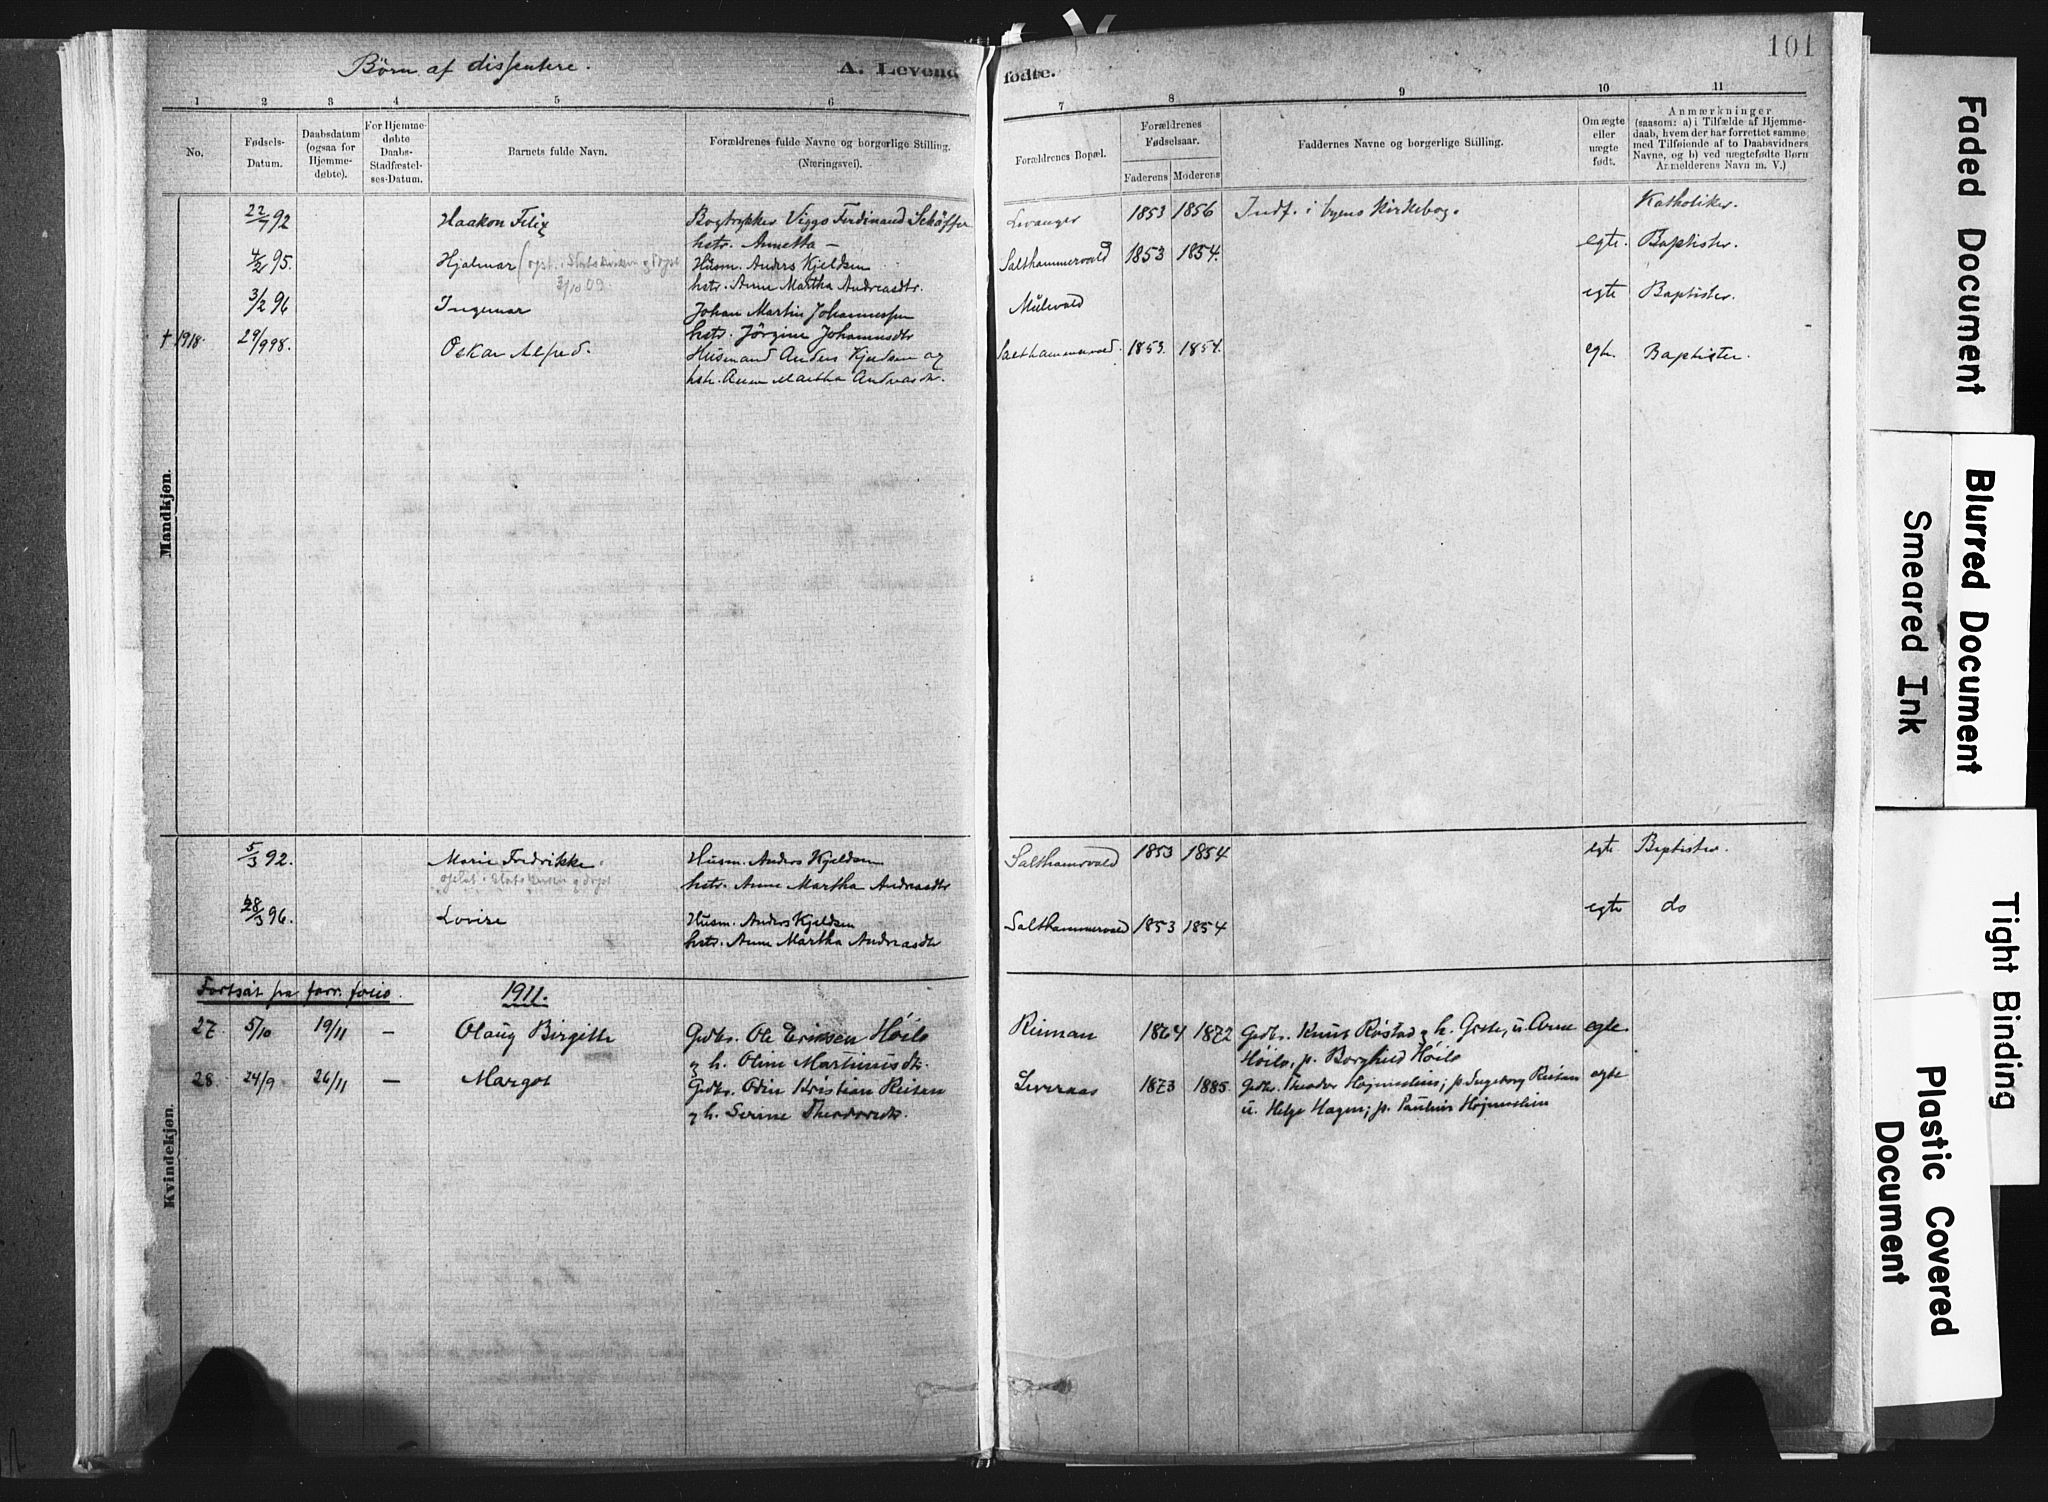 Børn af dissentere.
A. Levend
fødte.
101
1 2 3 4 5 6 7 8 9 10 11
No.
Fødsels-
Datum.
Daabsdatum
(ogsaa for
Hjemme-
døbte).
For Hjemme-
døbte
Daabs-
Stadfæstel-
ses-Datum.
Barnets fulde Navn.
Forældrenes fulde Navne og borgerlige Stilling.
(Næringsvei).
Forældrenes Bopæl.
Forældrenes
Fødselsaar.
Faderens Moderens
Faddernes Navne og borgerlige Stilling.
Om ægte
eller
uægte
født.
Anmærkninger
(saasom: a) i Tilfælde af Hjemme-
daab, hvem der har forrettet samme,
med Tilføiende af to Daabsvidners
Navne, og b) ved uægtefødte Børn
Anmelderens Navn m. V.)
Mandkjøn.
22/7 92 Haakon Felix Bogtrykker Viggo Ferdinand Schöffer Levanger 1853 1856 Indf. i byens Kirkebog. Katholiker.
hstr. Annetta —
4/2 95. Hjalmar Husm. Anders Kjeldsen Salthammervald 1853 1854. egte. Baptister.
3/10 09
hstr. Anne Martha Andreasdtr.
3/2 96 Ingemar Johan Martin Johannessen Mulevald egte Baptister.
hstr. Jörgine Johannesdtr
† 1918. 29/9 98. Oskar Alfred. Husmand Anders Kjeldsen og Salthammervald. 1853. 1854. egte. Baptister.
hstr. Anne Martha Andreasdtr.
5/3 92. Marie Fredrikke. Husm. Anders Kjeldsen Salthamrvald 1853 1854 egte Baptister.
hstr. Anne Martha Andreasdtr
28/3 96. Lovise Husm. Anders Kjeldsen Salthammervald 1853 1854 egte do
hstr. Anne Martha Andreasdtr
Fortsat fra forr. folio. 1911.
Kvindekjøn.
27. 5/10 19/11 — Olaug Birgitte Grdbr. Ole Eriksen Höilo Reiman 1864 1872 Grdbr. Knut Röstad g h. Grete, u. Arne egte
g h. Oline Martinusdtr. Höilo, p. Borghild Höilo
28. 24/9 26/11 — Margot Grdbr. Odin Kristian Reitan Leveraas 1873 1885. Grdbr. Theodor p. Ingeborg Reitan egte
g h. Serine Theodorsdtr. u. Helge Hagen; p.
Faded Document
Blurred Document
Smeared Ink
Tight Binding
Plastic Covered
Document